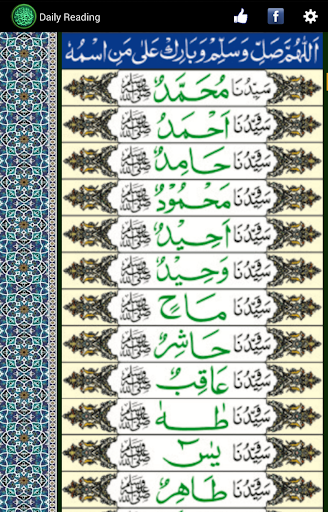 Daily Reading
اَللّٰهُمَّ صَلِّ وَسَلِّمْ وَبَارِكْ عَلٰى مَنِ اسْمُهٗ
سَيِّدُنَا مُحَمَّدٌ ﷺ
سَيِّدُنَا اَحْمَدُ ﷺ
سَيِّدُنَا حَامِدٌ ﷺ
سَيِّدُنَا مَحْمُوْدٌ ﷺ
سَيِّدُنَا اَحِيْدٌ ﷺ
سَيِّدُنَا وَحِيْدٌ ﷺ
سَيِّدُنَا مَاحٍ ﷺ
سَيِّدُنَا حَاشِرٌ ﷺ
سَيِّدُنَا عَاقِبٌ ﷺ
سَيِّدُنَا طٰهٰ ﷺ
سَيِّدُنَا يٰسٓ ﷺ
سَيِّدُنَا طَاهِرٌ ﷺ